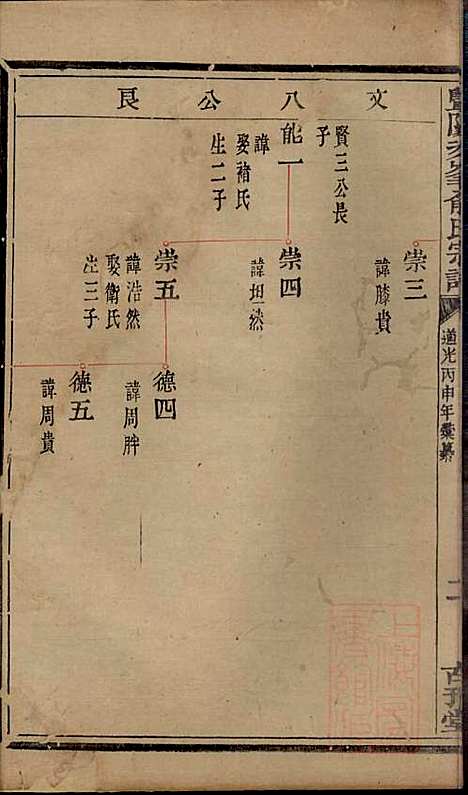 文八公良
崇三
諱勝貴
能一
賢三公長
子
諱
娶褚氏
生二子
崇四
諱坦然
崇五
諱浩然
娶衛氏
生三子
德四
諱周胖
德五
諱周貴
氏宗譜
道光丙申年彙纂
二